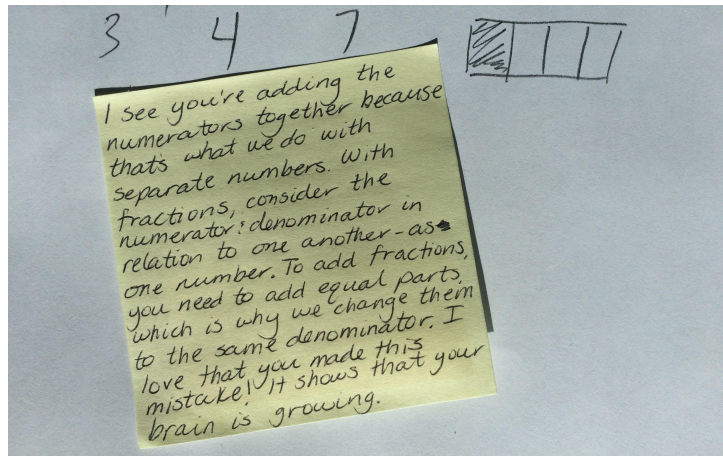 3 4 7
I see you're adding the
numerators together because
that's what we do with
separate numbers. With
fractions, consider the
numerator & denominator in
relation to one another - as
one number. To add fractions,
you need to add equal parts,
which is why we change them
to the same denominator. I
love that you made this
mistake! It shows that your
brain is growing.